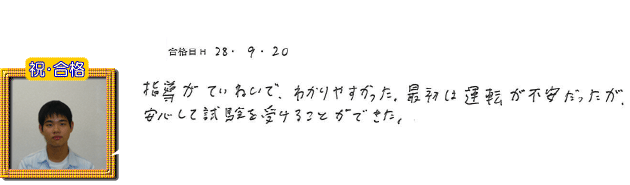 合格日H 28. 9. 20
祝・合格
指導がていねいで、わかりやすかった。最初は運転が不安だったが、
安心して試験を受けることができた。